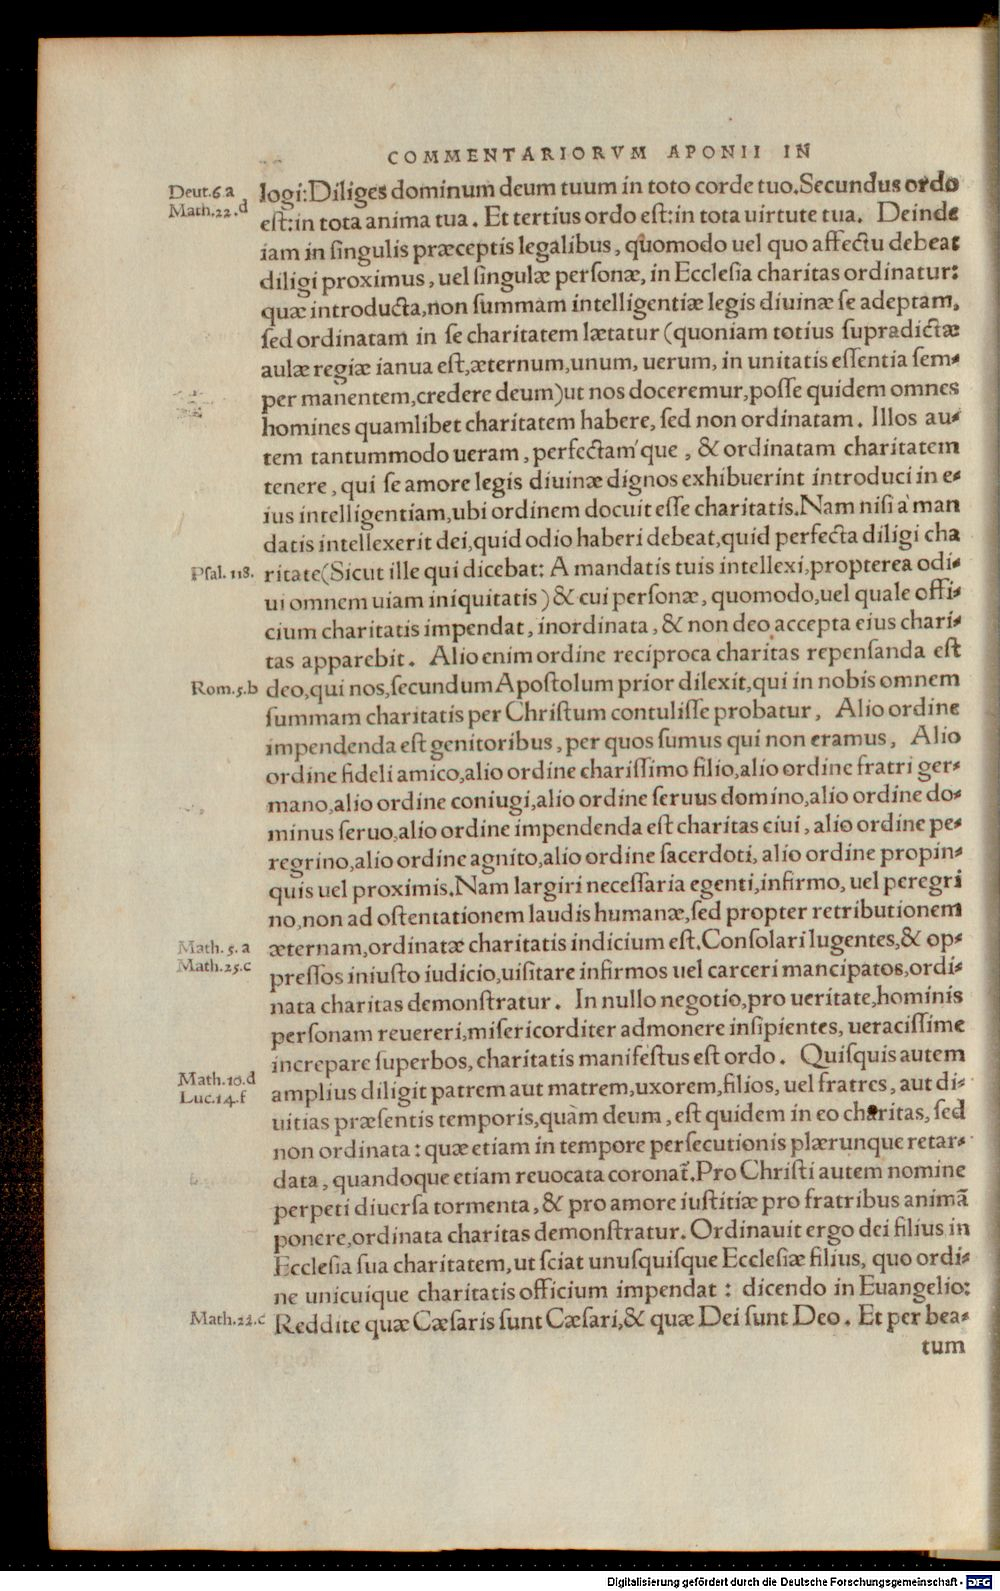 COMMENTARIORVM APONII IN
Deut.6.a
Math.22.d
logi:Diliges dominum deum tuum in toto corde tuo.Secundus ordo
eſt:in tota anima tua. Et tertius ordo eſt:in tota uirtute tua. Deinde
iam in ſingulis præceptis legalibus, quomodo uel quo affectu debeat
diligi proximus, uel ſingulæ perſonæ, in Eccleſia charitas ordinatur:
quæ introducta,non ſummam intelligentiæ legis diuinæ ſe adeptam,
ſed ordinatam in ſe charitatem lætatur (quoniam totius ſupradictæ
aulæ regiæ ianua eſt,æternum,unum, uerum, in unitatis eſſentia ſem-
per manentem,credere deum)ut nos doceremur,poſſe quidem omnes
homines quamlibet charitatem habere, ſed non ordinatam. Illos au-
tem tantummodo ueram, perfectaḿque, & ordinatam charitatem
tenere, qui ſe amore legis diuinæ dignos exhibuerint introduci in e-
ius intelligentiam,ubi ordinem docuit eſſe charitatis.Nam niſi à man
datis intellexerit dei,quid odio haberi debeat,quid perfecta diligi cha
Pſal.118.
ritate(Sicut ille qui dicebat: A mandatis tuis intellexi,propterea odi-
ui omnem uiam iniquitatis)& cui perſonæ, quomodo,uel quale offi-
cium charitatis impendat, inordinata, & non deo accepta eius chari-
tas apparebit. Alio enim ordine reciproca charitas repenſanda eſt
Rom.5.b
deo,qui nos,ſecundum Apoſtolum prior dilexit,qui in nobis omnem
ſummam charitatis per Chriſtum contuliſſe probatur, Alio ordine
impendenda eſt genitoribus, per quos ſumus qui non eramus, Alio
ordine fideli amico,alio ordine chariſſimo filio,alio ordine fratri ger-
mano,alio ordine coniugi,alio ordine ſeruus domino,alio ordine do-
minus ſeruo,alio ordine impendenda eſt charitas ciui, alio ordine pe-
regrino,alio ordine agnito,alio ordine ſacerdoti, alio ordine propin-
quis uel proximis.Nam largiri neceſſaria egenti,infirmo, uel peregri
no,non ad oſtentationem laudis humanæ,ſed propter retributionem
Math. 5. a
æternam,ordinatæ charitatis indicium eſt.Conſolari lugentes,& op-
Math.25.c
preſſos iniuſto iudicio,uiſitare infirmos uel carceri mancipatos,ordi-
nata charitas demonſtratur. In nullo negotio,pro ueritate,hominis
perſonam reuereri,miſericorditer admonere inſipientes, ueraciſſime
increpare ſuperbos, charitatis manifeſtus eſt ordo. Quiſquis autem
Math.10.d
Luc.14.f
amplius diligit patrem aut matrem,uxorem,filios, uel fratres, aut di-
uitias præſentis temporis,quàm deum, eſt quidem in eo charitas, ſed
non ordinata: quæ etiam in tempore perſecutionis plærunque retar-
data, quandoque etiam reuocata coronat̃.Pro Chriſti autem nomine
perpeti diuerſa tormenta, & pro amore iuſtitiæ pro fratribus animã
ponere,ordinata charitas demonſtratur. Ordinauit ergo dei filius in
Eccleſia ſua charitatem,ut ſciat unuſquiſque Eccleſiæ filius, quo ordi-
ne unicuique charitatis officium impendat: dicendo in Euangelio:
Math.22.c
Reddite quæ Cæſaris ſunt Cæſari,& quæ Dei ſunt Deo. Et per bea-
tum
Digitalisierung gefördert durch die Deutsche Forschungsgemeinschaft - DFG